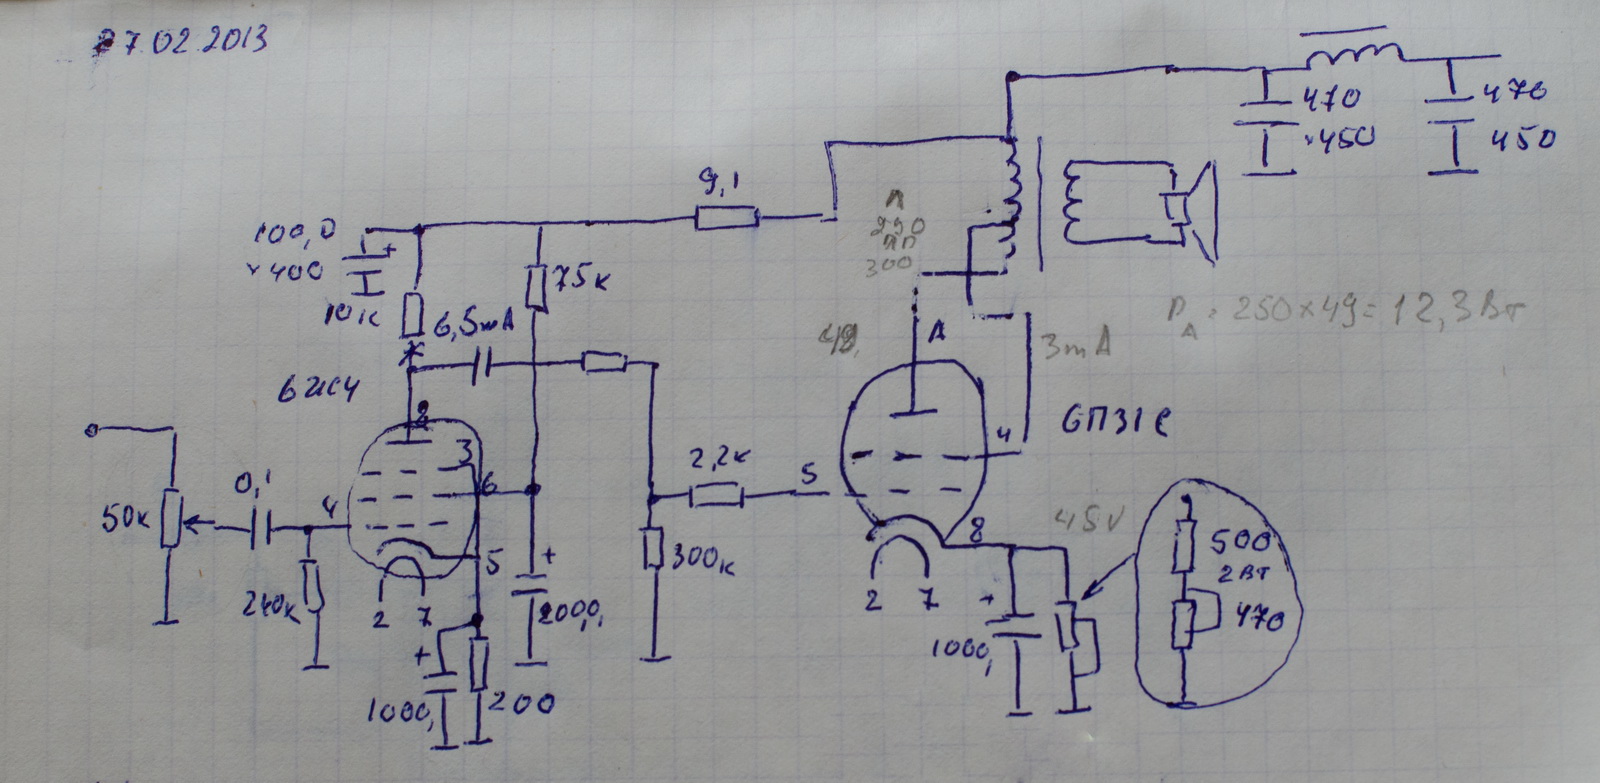 27.02.2013
470
×450
470
450
9,1
100,0
×400
10к
6,5mA
75к
А
250
300
49
А
3mA
P_A = 250×49 = 12,3 Вт
8
3
6
4
5
2 7
50к
0,1
240к
+
1000,
200
+
2000,
300к
2,2к
5
4
6П31С
8
2 7
45V
+
1000,
500
2 Вт
470